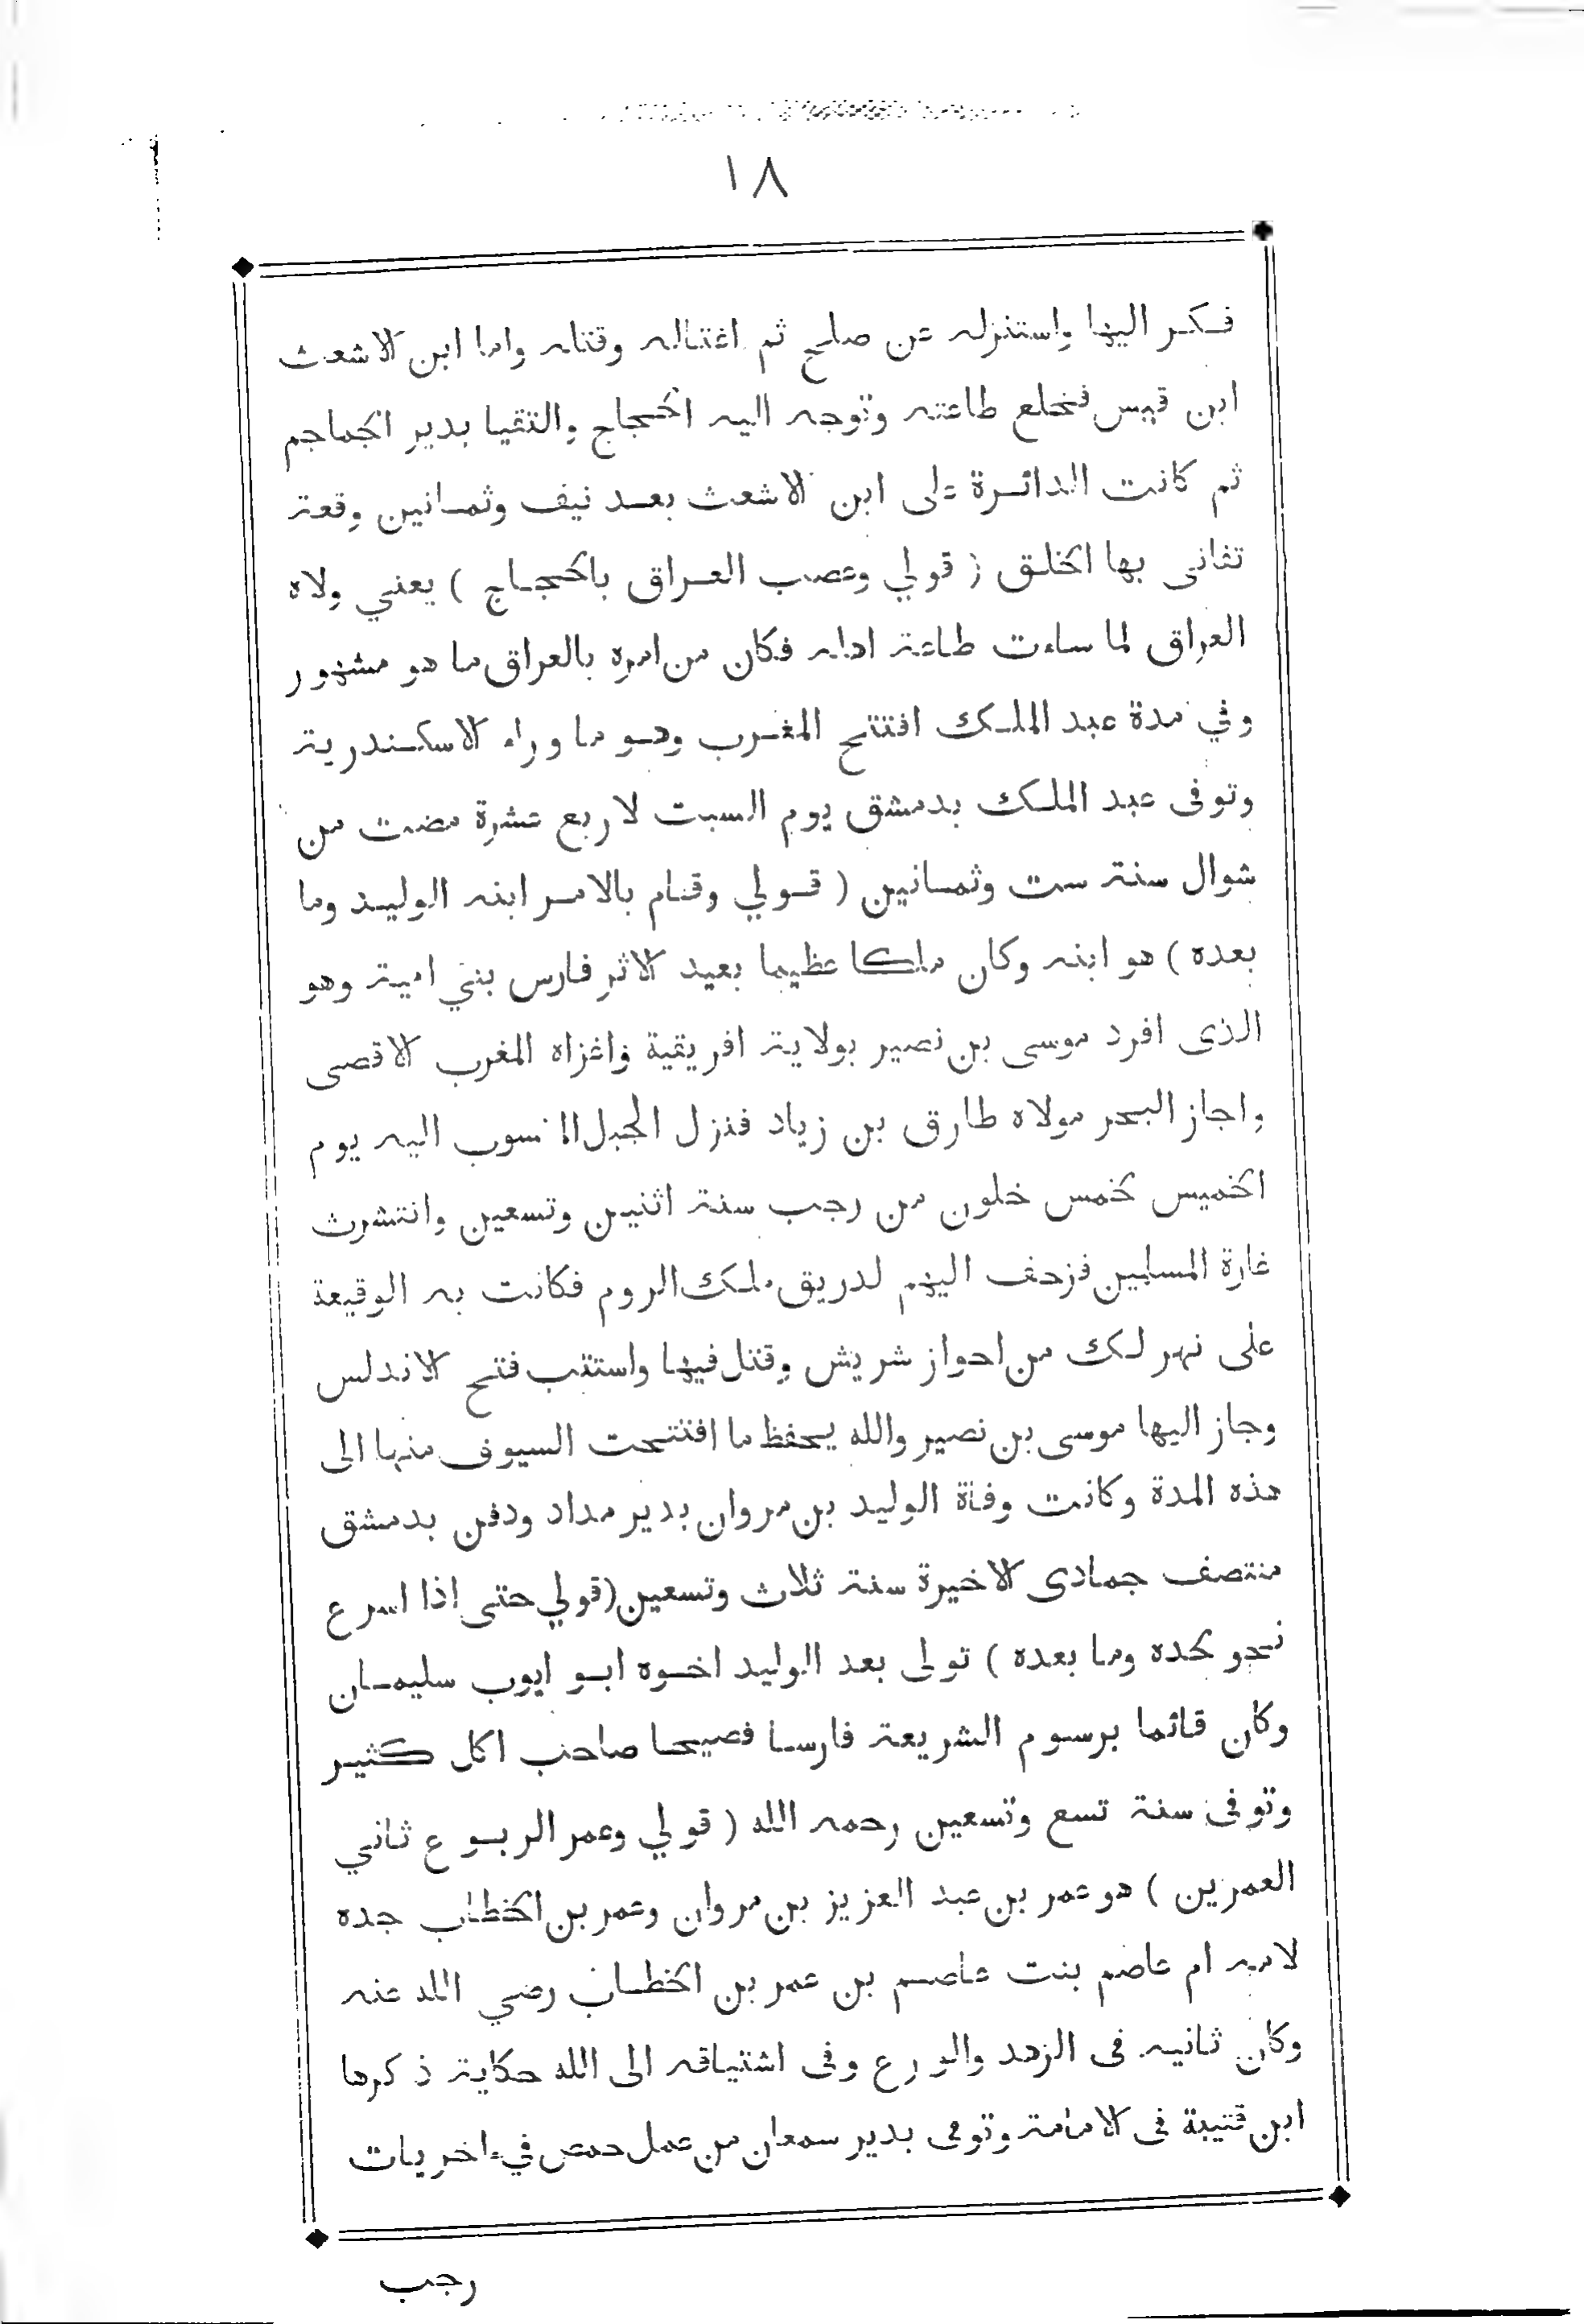 ١٨
فكر اليها واستنزله عن صلح ثم اغتاله وقتله واما ابن الاشعث
ابن قيس فخلع طاعته وتوجه اليه الحجاج والتقيا بدير الجماجم
ثم كانت الدائرة على ابن الاشعث بعد نيف وثمانين وقعة
تفانى بها الخلق ( قولي وعصب العراق بالحجاج ) يعني ولاه
العراق لما ساءت طاعة اهله فكان من امره بالعراق ما هو مشهور
وفي مدة عبد الملك افتتح المغرب وهو ما وراء الاسكندرية
وتوفى عبد الملك بدمشق يوم السبت لاربع عشرة مضت من
شوال سنة ست وثمانين ( قولي وقام بالامر ابنه الوليد وما
بعده ) هو ابنه وكان ملكا عظيما بعيد الاثر فارس بني امية وهو
الذى افرد موسى بن نصير بولاية افريقية واغزاه المغرب الاقصى
واجاز البحر مولاه طارق بن زياد فنزل الجبل المنسوب اليه يوم
الخميس لخمس خلون من رجب سنة اثنين وتسعين وانتشرت
غارة المسلمين فزحف اليهم لدريق ملك الروم فكانت به الوقيعة
على نهر لك من احواز شريش وقتل فيها واستتب فتح الاندلس
وجاز اليها موسى بن نصير والله يحفظ ما افتتحت السيوف منها الى
هذه المدة وكانت وفاة الوليد بن مروان بدير مداد ودفن بدمشق
منتصف جمادى الاخيرة سنة ثلاث وتسعين (قولي حتى اذا اسرع
نحو لحده وما بعده ) تولى بعد الوليد اخوه ابو ايوب سليمان
وكان قائما برسوم الشريعة فارسا فصيحا صاحب اكل كثير
وتوفى سنة تسع وتسعين رحمه الله ( قولي وعمر الربوع ثاني
العمرين ) هو عمر بن عبد العزيز بن مروان وعمر بن الخطاب جده
لامه ام عاصم بنت عاصم بن عمر بن الخطاب رضي الله عنه
وكان ثانيه فى الزهد والورع وفى اشتياقه الى الله حكاية ذكرها
ابن قتيبة فى الامامة وتوفى بدير سمعان من عمل حمص في ءاخريات
رجب